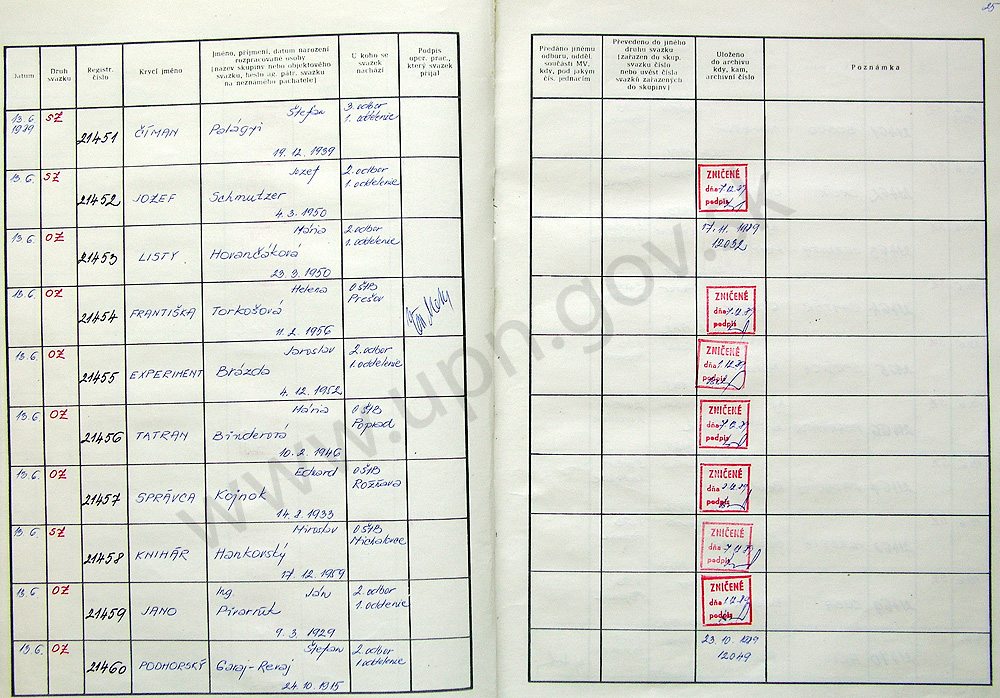 25
Datum
Druh svazku
Registr. číslo
Krycí jméno
Jméno, příjmení, datum narození
rozpracované osoby
(název skupiny nebo objektového
svazku, heslo ag. pátr. svazku
na neznámého pachatele)
U koho se
svazek
nachází
Podpis
oper. prac.,
který svazek
přijal
Předáno jinému
odboru, odděl.
součásti MV,
kdy, pod jakým
čís. jednacím
Převedeno do jiného
druhu svazku
(zařazen do skup.
svazku číslo
nebo uvést čísla
svazků zařazených
do skupiny)
Uloženo
do archivu
kdy, kam,
archivní číslo
Poznámka
13.6. 1989 SZ 21451 ČÍMAN Štefan Palágyi 19.12.1939 3. odbor 1. oddelenie
13.6. SZ 21452 JOZEF Jozef Schmutzer 4.3.1950 2. odbor 1. oddelenie
ZNIČENÉ dňa 7.12.89 podpis
13.6. OZ 21453 LISTY Mária Hovančáková 23.3.1950 2. odbor 1. oddelenie
17.11.1989 12052
13.6. OZ 21454 FRANTIŠKA Helena Torkošová 11.2.1956 OŠtB Prešov
ZNIČENÉ dňa 7.12.89 podpis
13.6. OZ 21455 EXPERIMENT Jaroslav Brázda 4.12.1952 2. odbor 1. oddelenie
ZNIČENÉ dňa 7.12.89
13.6. OZ 21456 TATRAN Mária Binderová 10.2.1946 OŠtB Poprad
ZNIČENÉ dňa 7.12.89 podpis
13.6. OZ 21457 SPRÁVCA Eduard Kojnok 14.8.1933 OŠtB Rožňava
ZNIČENÉ dňa 7.12.89 podpis
13.6. SZ 21458 KNIHÁR Miroslav Hankovský 17.12.1959 OŠtB Michalovce
ZNIČENÉ dňa 7.12.89 podpis
13.6. OZ 21459 JANO Ing. Ján 9.3.1929 2. odbor 1. oddelenie
ZNIČENÉ dňa 7.12.89 podpis
13.6. OZ 21460 PODHORSKÝ Štefan Garaj-Renaj 24.10.1915 2. odbor 1. oddelenie
23.10.1989 12049
www.upn.gov.sk